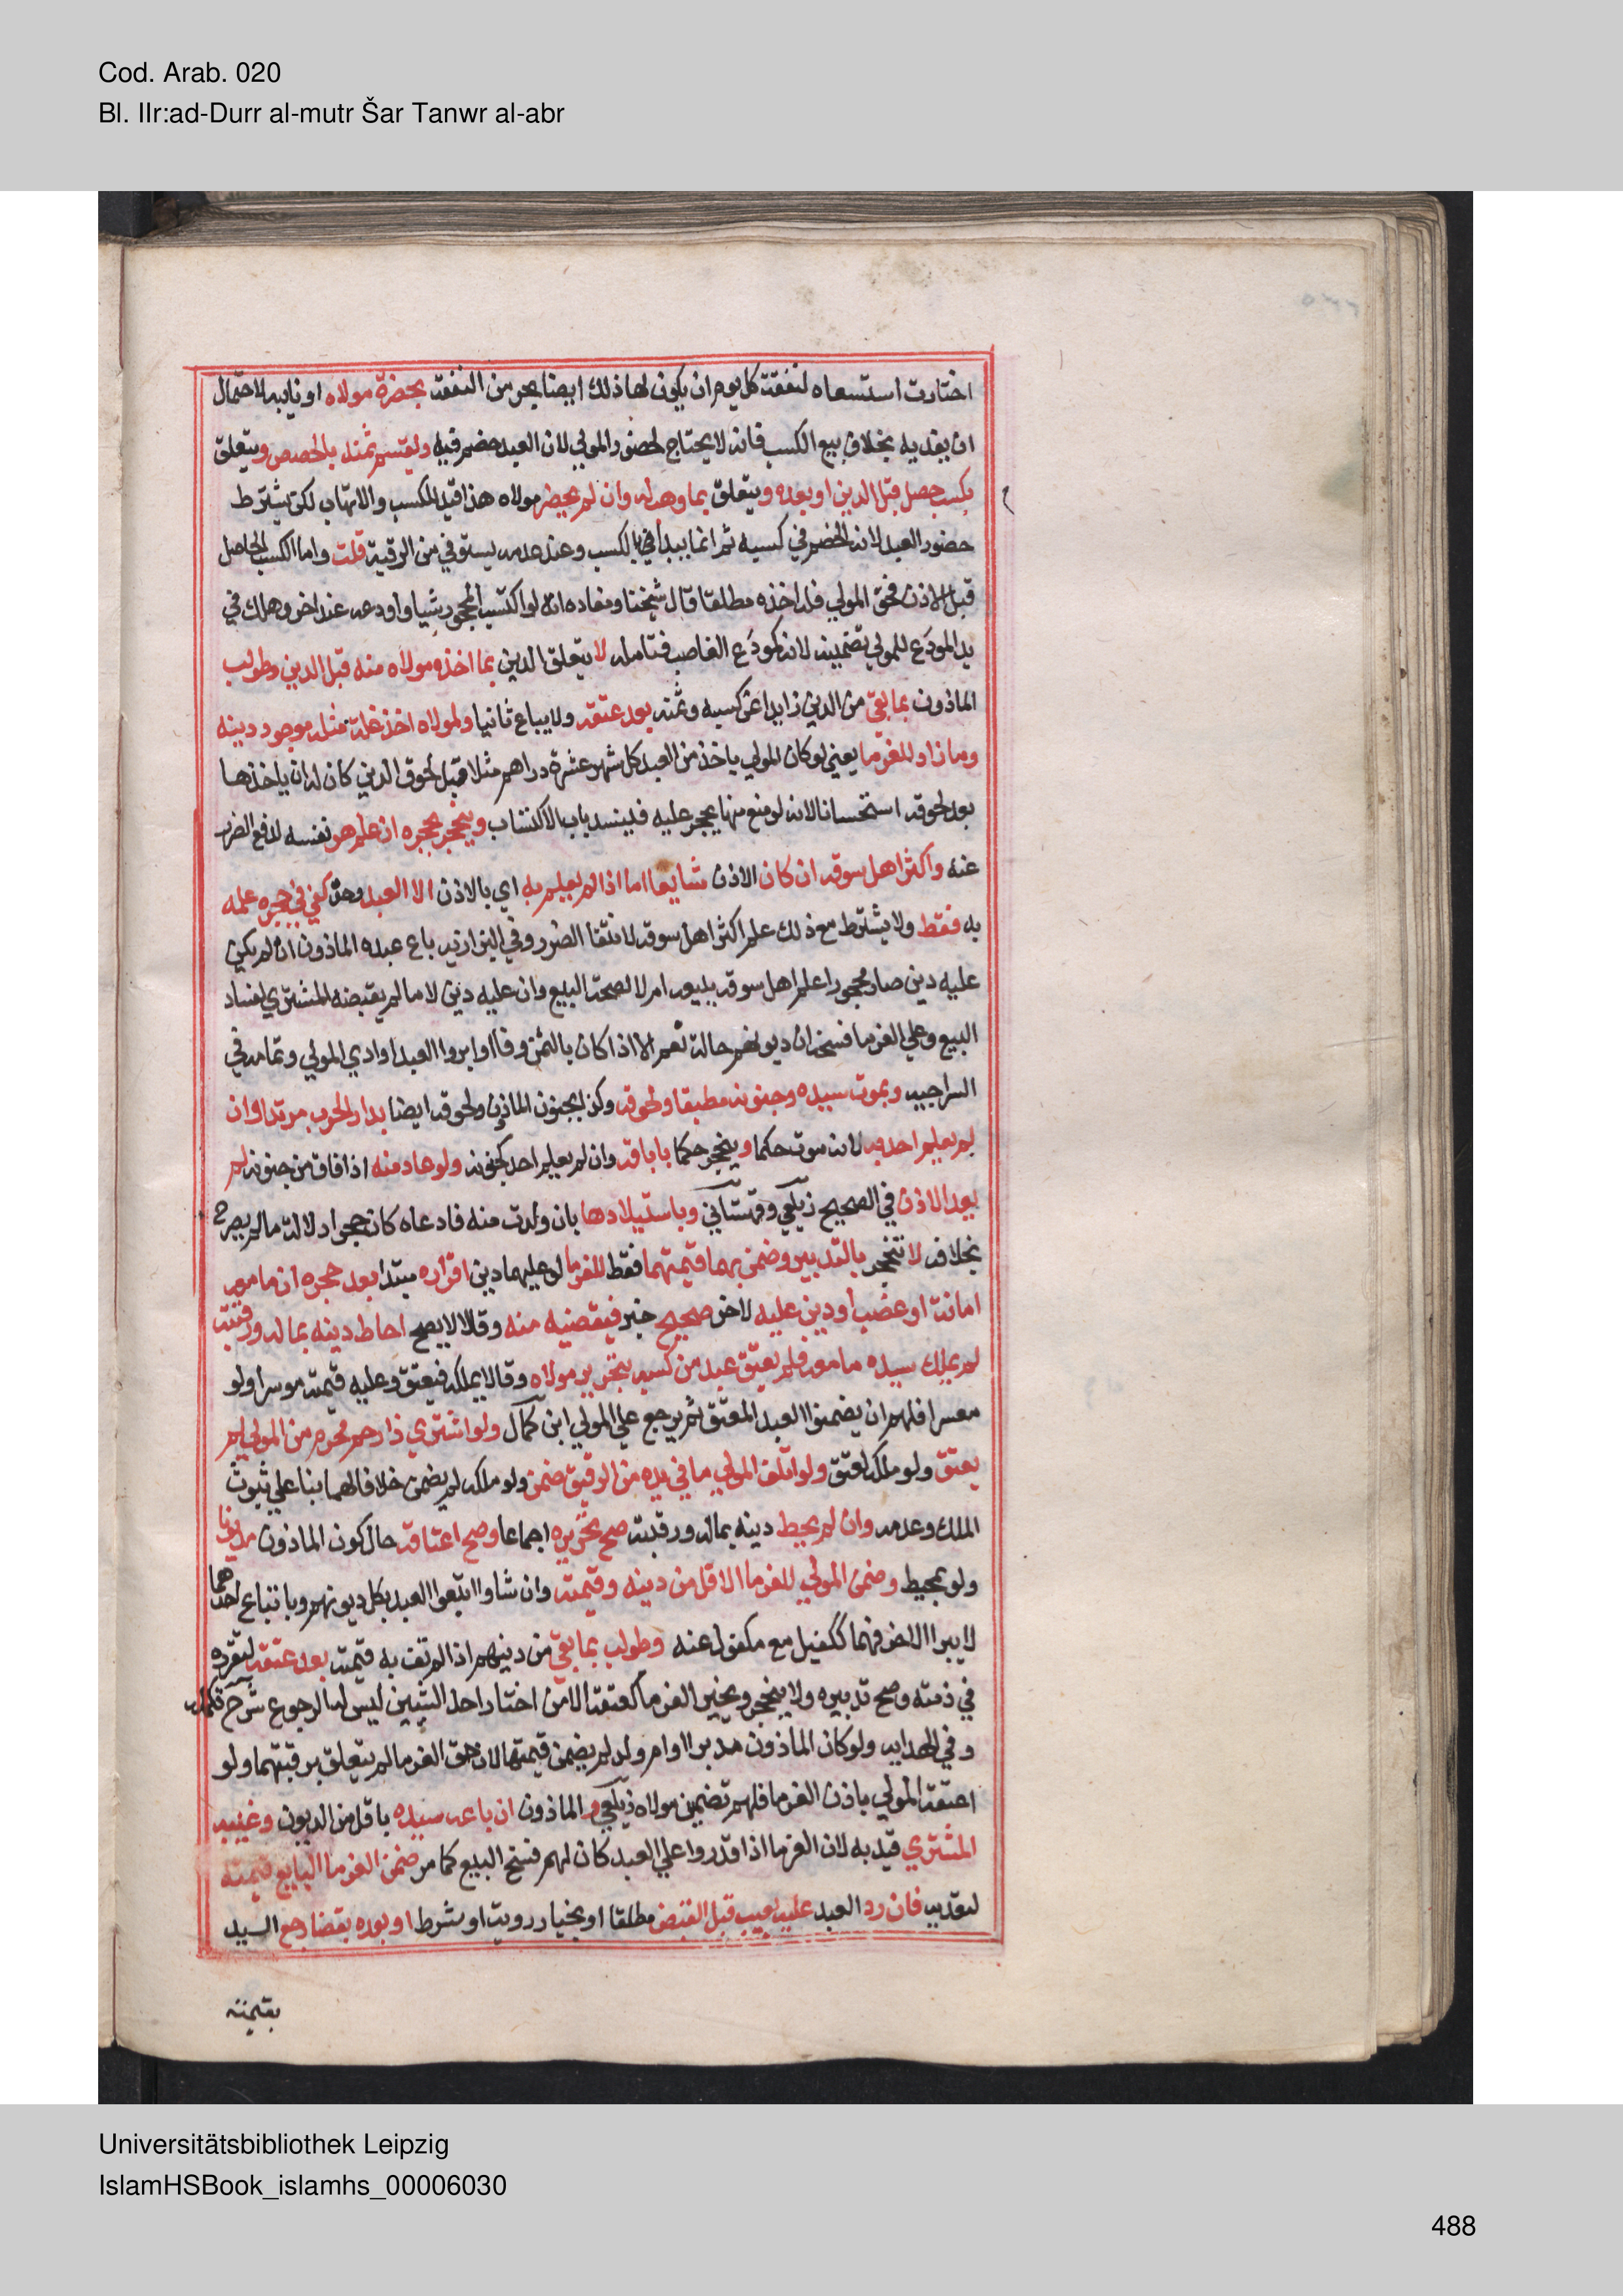 Cod. Arab. 020
Bl. IIr:ad-Durr al-mutr Šar Tanwr al-abr
اختارت استسعاه لنفقت كل يوم ان يكون لها ذلك ايضا بحر من النفقة بحضرة مولاه او نايبه لاحتمال
ان يفديه بخلاف بيع الكسب فانه لا يحتاج لحضور المولي لان العبد خصم فيه ويقسم ثمنه بالحصص ويتعلق
بكسب حصل قبل الدين او بعده ويتعلق بما وهب له وان لم يحضر مولاه هذا قيد للكسب والاتهاب لكن يشترط
حضور العبد لانه الخصم في كسبه ثم انما يبدأ بالكسب وعند عدمه يستوفي من الرقبة قلت واما الكسب الحاصل
قبل الاذن فحق المولي فله اخذه مطلقا قال شيخنا ومفاده انه لو اكتسب المحجور شيا واودعه عند اخر وهلك في
يد المودَع للمولي تضمينه لانه كمودَع الغاصب فتامله لا يتعلق الدين بما اخذه مولاه منه قبل الدين وطولب
الماذون بما بقي من الدين زايدا عن كسبه وثمنه بعد عتقه ولا يباع ثانيا ولمولاه اخذ غلة مثله بوجود دينه
وما زاد للغرما يعني لو كان المولي ياخذ من العبد كل شهر عشرة دراهم مثلا قبل لحوق الدين كان له ان ياخذها
بعد لحوقه استحسانا لانه لو منع منها يحجر عليه فينسد باب الاكتساب وينحجر بحجره ان علم هو نفسه لدفع الضرر
عنه واكثر اهل سوقه ان كان الاذن شايعا اما اذا لم يعلم به اي بالاذن الا العبد وحده كفي في حجره علمه
به فقط ولا يشترط مع ذلك علم اكثر اهل سوقه لانتفا الضرر وفي البزازية باع عبده الماذون ان لم يكن
عليه دين صار محجورا علم اهل سوقه ببيعه ام لا لصحة البيع وان عليه دين لا ما لم يقبضه المشتري لفساد
البيع وعلي الغرما فسخه ان ديونهم حالة نعم الا اذا كان بالثمن وفا او ابروا العبد او ادي المولي وتمامه في
السراجيه وبموت سيده وجنونه مطبقا ولحوقه وكذا بجنون الماذون ولحوقه ايضا بدار الحرب مرتدا وان
لم يعلم احد به لانه موت حكما وينحجر حكما باباقه وان لم يعلم احد كجنونه ولو عاد منه اذا افاق من جنونه لم
يعد الاذن في الصحيح زيلعي وقهستاني وباستيلادها بان ولدت منه فادعاه كان حجرا دلالة ما لم يصرح
بخلافه لا تنحجر بالتدبير وضمن بهما قيمتهما فقط للغرما لو عليهما دين اقراره مبتدا بعد حجره ان ما معه
امانت او غصب او دين عليه لاخر صحيح خبر فيقضيه منه وقالا لا يصح احاط دينه بماله ورقبته
لم يملك سيده ما معه فلم يعتق عبد من كسبه بتحرير مولاه وقالا يملكه فيعتق وعليه قيمته موسرا ولو
معسرا فلهم ان يضمنوا العبد المعتق ثم يرجع علي المولي ابن كمال ولو اشتري ذا رحم محرم من المولي لم
يعتق ولو ملكه لعتق ولو اتلف المولي ما في يده من الرقيق ضمن ولو ملكه لم يضمن خلافا لهما بنا علي ثبوت
الملك وعدمه وان لم يحيط دينه بماله ورقبته صح تحريره اجماعا وصح اعتاقه حال كون الماذون مديونا
ولو بمحيط وضمن المولي للغرما الاقل من دينه وقيمته وان شاوا اتبعوا العبد بكل ديونهم وباتباع احدهما
لا يبرا الاخر فهما ككفيل مع مكفول عنه وطولب بما بقي من دينهم اذا لم تف به قيمته بعد عتقه لتقرره
في ذمته وصح تدبيره ولا ينحجر ويخير الغرما كعتقه الا من اختار احد الشيئين ليس له الرجوع شرح تكمله
وفي الهدايه ولو كان الماذون مدبرا او ام ولد لم يضمن قيمتها لان حق الغرما لم يتعلق برقبتهما ولو
اعتقه المولي باذن الغرما فلهم تضمين مولاه زيلعي و الماذون ان باعه سيده باقل من الديون وغيبه
المشتري قيد به لان الغرما اذا قدروا علي العبد كان لهم فسخ البيع كما مر ضمن الغرما البايع قيمته
لتعديه فان رد العبد عليه بعيب قبل القبض مطلقا او بخيار رويت او شرط او بعده بقضا رجع السيد
بقيمته
Universitätsbibliothek Leipzig
IslamHSBook_islamhs_00006030
488